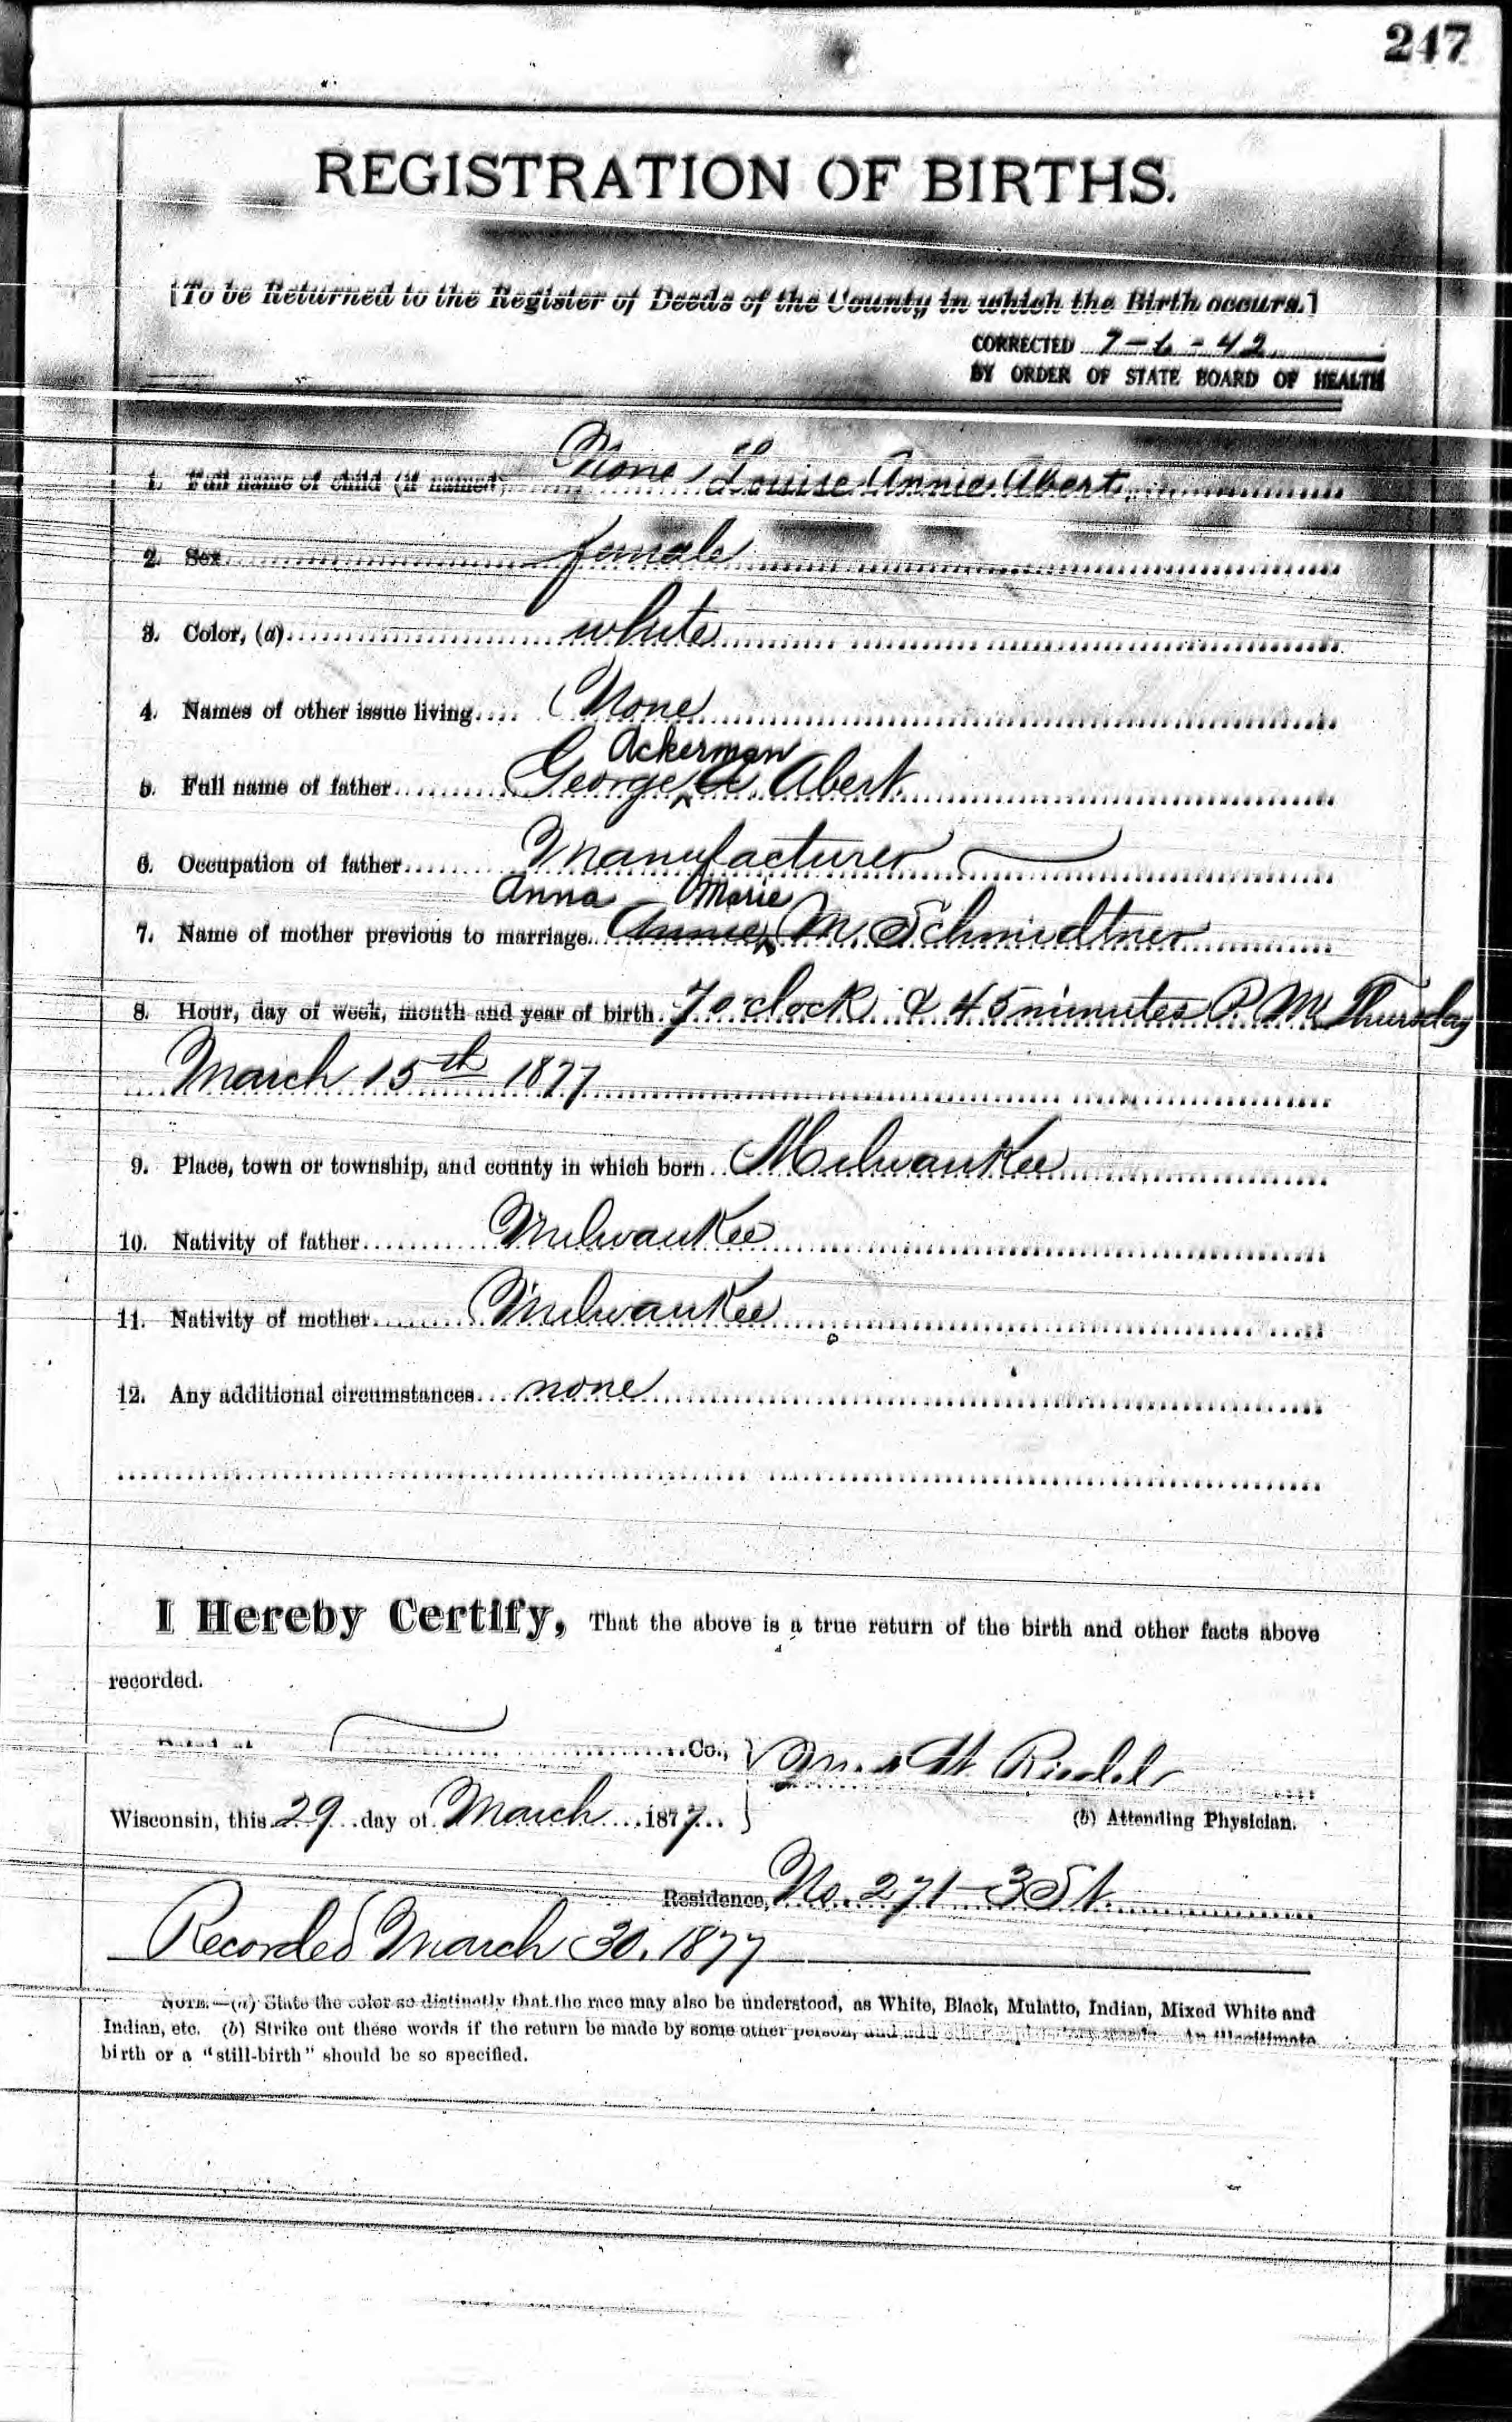 247
REGISTRATION OF BIRTHS.
[To be Returned to the Register of Deeds of the County in which the Birth occurs.]
CORRECTED 7-6-42
BY ORDER OF STATE BOARD OF HEALTH
1. Full name of child (if named) None Louise Annie Abert
2. Sex female
3. Color, (a) white
4. Names of other issue living None
Ackerman
5. Full name of father George A Abert
6. Occupation of father Manufacturer
Anna Marie
7. Name of mother previous to marriage Annie M. Schmidtner
8. Hour, day of week, month and year of birth 7 o clock & 45 minutes P. M. Thursday
March 15th 1877
9. Place, town or township, and county in which born Milwaukee
10. Nativity of father Milwaukee
11. Nativity of mother Milwaukee
12. Any additional circumstances none
I Hereby Certify, That the above is a true return of the birth and other facts above
recorded.
Dated at Co.,
Wisconsin, this 29 day of March 1877
(b) Attending Physician.
Residence, No. 271-3 St.
Recorded March 30. 1877
NOTE.—(a) State the color so distinctly that the race may also be understood, as White, Black, Mulatto, Indian, Mixed White and
Indian, etc. (b) Strike out these words if the return be made by some other person, and add other explanatory words. An illegitimate
birth or a "still-birth" should be so specified.